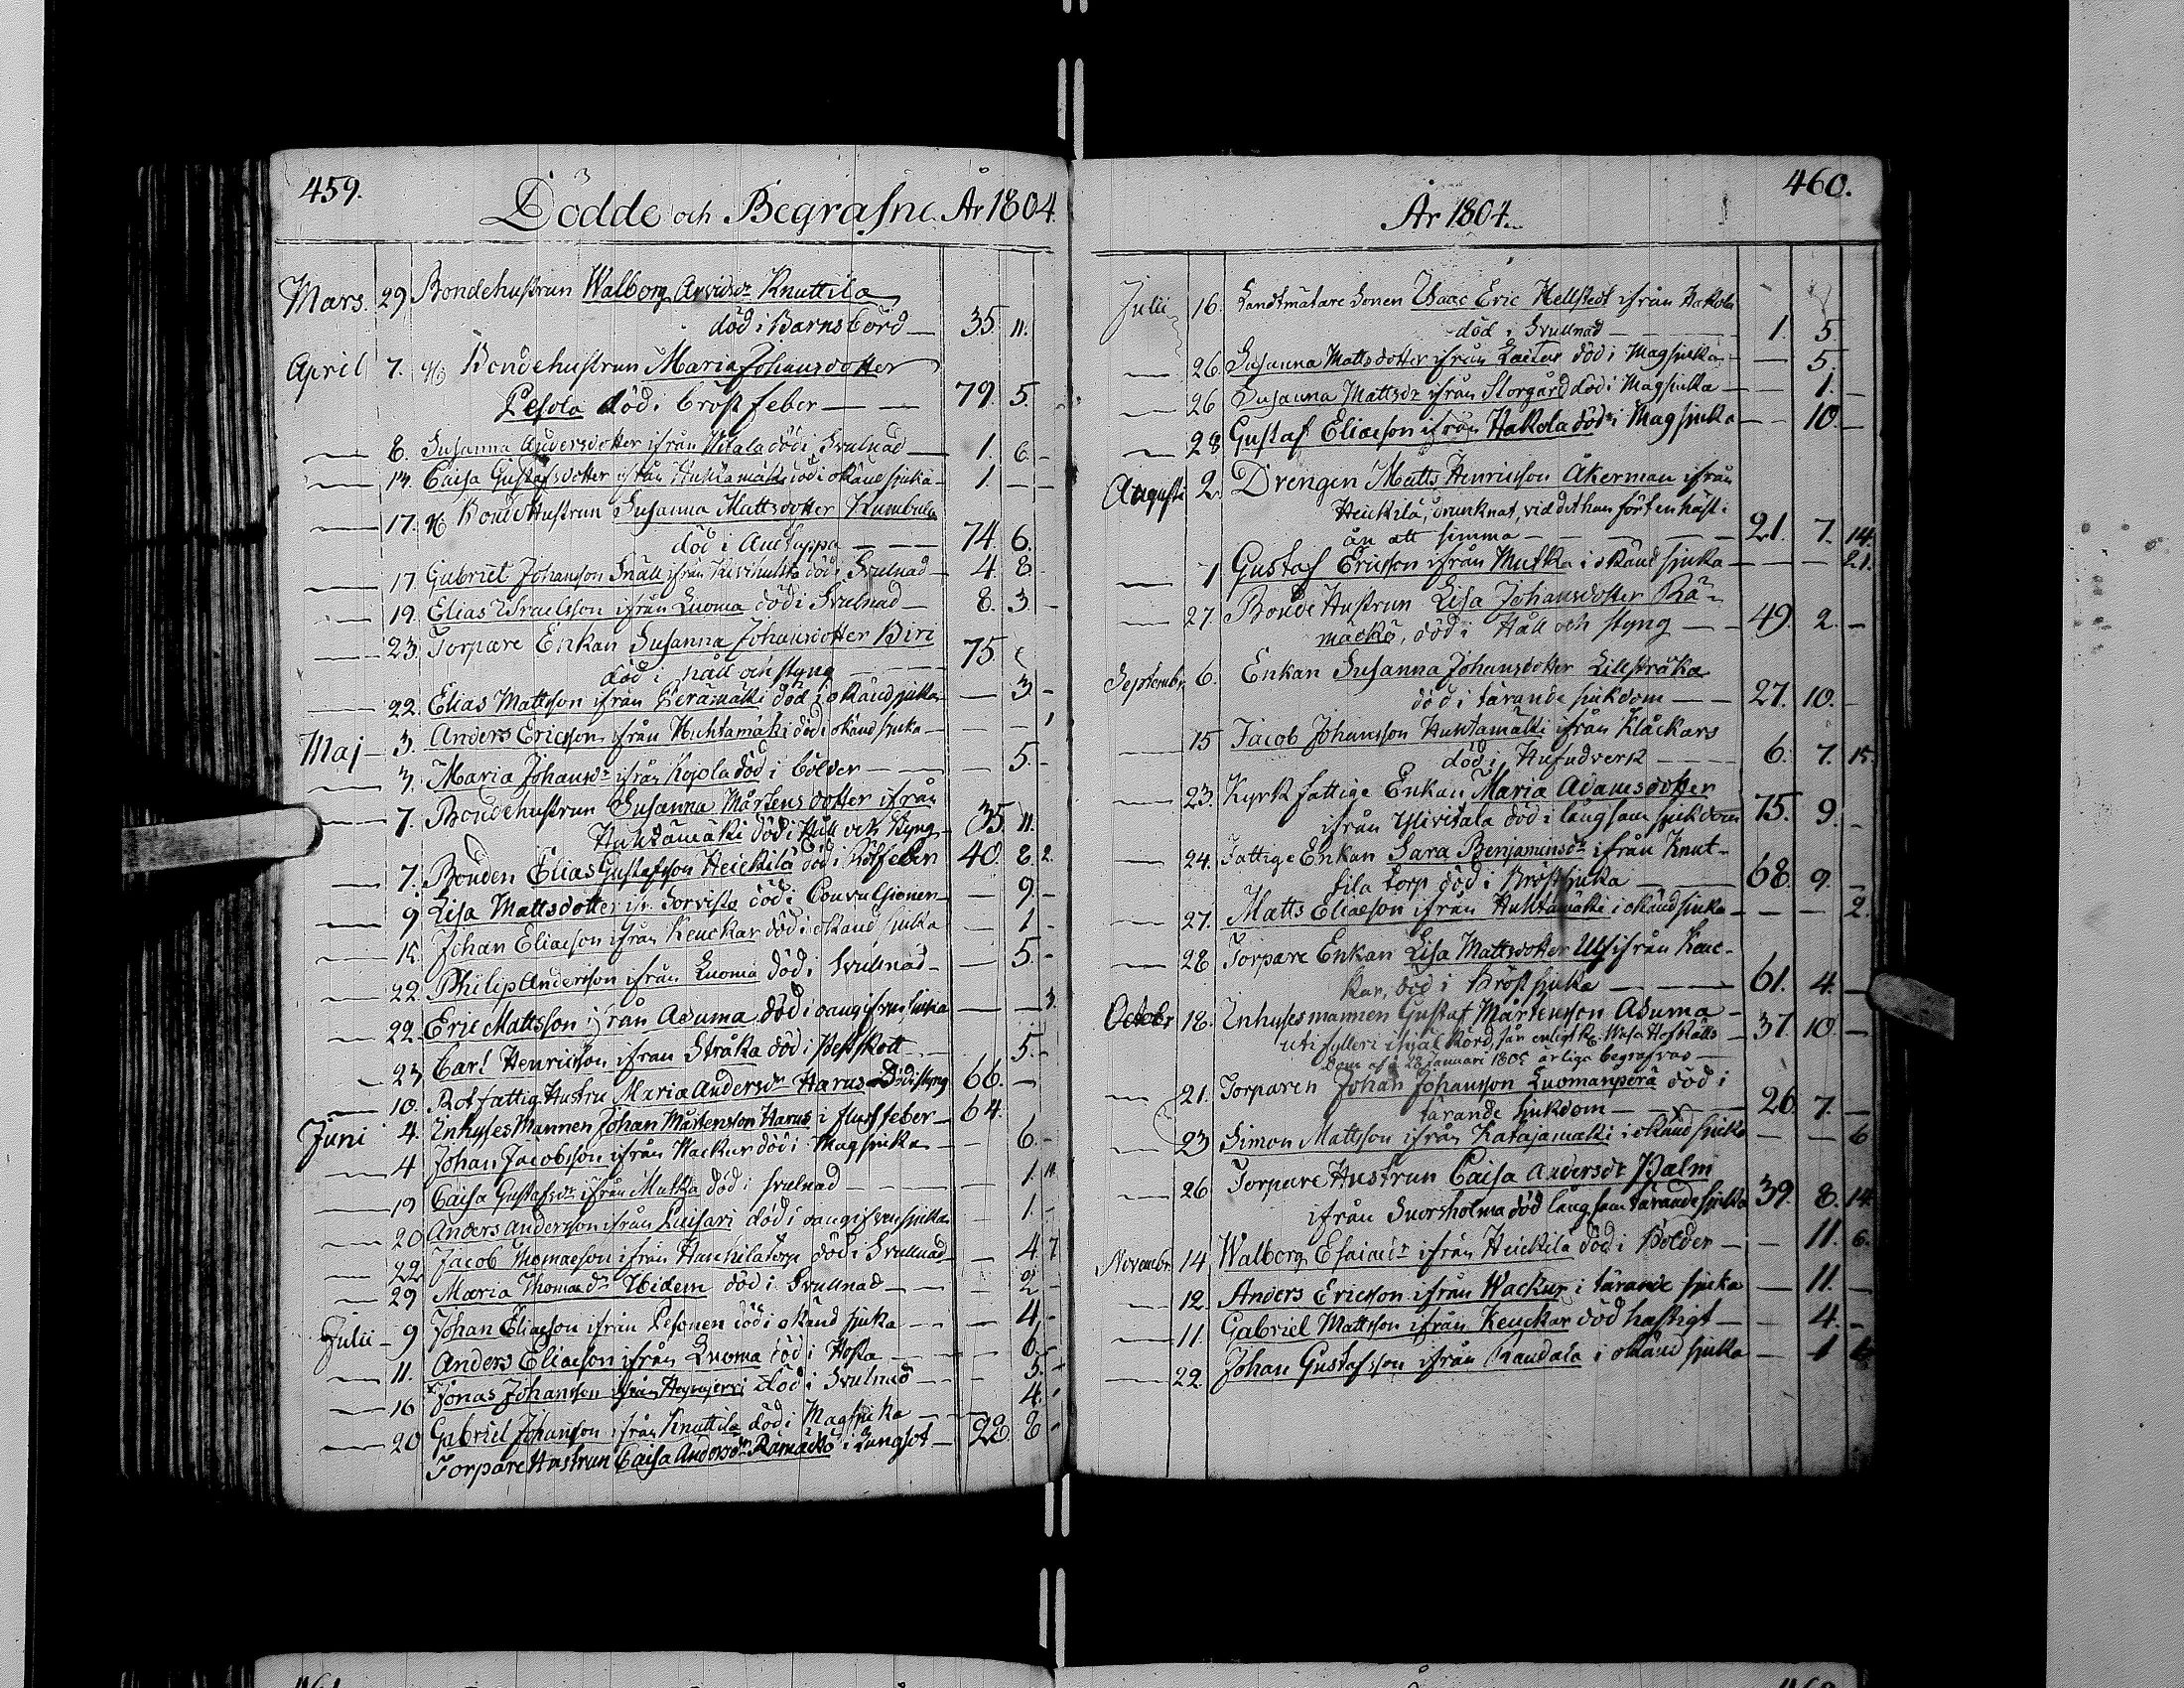 459.
Dödde och Begrafne År 1804.
Mars. 29 Bondehustrun Walborg Arvidsdr Knuttila
död i Barnsbörd — 35. 11.
April 7. Bondehustrun Maria Johansdotter
Pesola död i bröstfeber — — 79. 5.
— 8. Susanna Andersdotter ifrån död i Svulnad — 1. 6. -
— 14. Caisa Gustafsdotter ifrån Huhtamäki död i okänd sjuka - 1. — -
— 17. Bondehustrun Susanna Mattsdotter Kumbula
död i — — 74. 6.
— 17. Gabriel Johansson Snäll ifrån död i Svulnad — 4. 8.
— 19. Elias Israelsson ifrån Luoma död i Svulnad — 8. 3. -
— 23. Torpare Enkan Susanna Johansdotter Biri
död i håll och styng — 75.
— 22. Elias Mattsson ifrån Perämäki död i okänd sjuka — 3 -
Maj — 3. Anders Ericsson ifrån Huhtamäki död i okänd sjuka — — 1
— 3. Maria Johansdr ifrån Kojola död i bölder — — 5. -
— 7. Bondehustrun Susanna Mårtensdotter ifrån
Huhtamäki död i Håll och styng — 35. 11.
— 7. Bonden Elias Gustafsson Heickilä död i feber 40. 8. 2.
— 9 Lisa Mattsdotter ifr. Sorvisto död i Convulsioner — 9. -
— 15. Johan Eliaeson ifrån Keuckar död i okänd sjuka — 1 -
— 22. Philip Andersson ifrån Luoma död i Svullnad — 5. -
— 22. Eric Mattsson ifrån Asuma död i oangifven sjuka — — 3.
— 23 Carl Henricsson ifrån Stråka död i — 5. -
— 10. Rotfattig Hustru Maria Andersdr Harus död i styng 66. —
Juni 4. Inhyses Mannen Johan Mårtensson Harus i fluss feber — 64.
— 4 Johan Jacobsson ifrån Wackur död i Magsjuka — 6. -
— 19 Caisa Gustafsdr ifrån Mutka död i svulnad — — 1.
— 20 Anders Andersson ifrån Luisari död i oangifven sjuka 1. -
— 22 Jacob Thomaeson ifrån torp död i Svullnad — 4 7
— 29 Maria Thomaedr Ibidem död i Svullnad — 2 -
Julii — 9 Johan Eliaeson ifrån Pesonen död i okänd sjuka — 4. -
— 11. Anders Eliaeson ifrån Luoma död i Hosta — 6. -
— 16 Jonas Johansson ifrån död i Svulnad — 5. -
Gabriel Johansson ifrån Knuttila död i Magsjuka — 4.
— 20 Torpare Hustrun Caisa Andersdr Rämäckö i Lungsot — 28. 8 -
460.
År 1804.
Julii 16. Landtmätare Sonen Isaac Eric Hellstedt ifrån Hakola
död i Svullnad — 1. 5.
— 26. Susanna Mattsdotter ifrån död i Magsjuka — 5.
— 26 Susanna Mattsdr ifrån Storgård död i Magsjuka — 1. -
— 28 Gustaf Eliaeson ifrån Hakola död i Magsjuka — 10. —
Augusti 2. Drengen Matts Henricsson Åkerman ifrån
Heickilä, drunknat, vid det han fört en häst i
ån att simma — 21. 7. 14.
— 1 Gustaf Ericsson ifrån Mutka i okänd sjuka — — 21.
— 27. Bonde Hustrun Lisa Johansdotter Rä-
mäckö, död i Håll och styng — 49. 2. —
Septembr. 6. Enkan Susanna Johansdotter Lillstråka
död i tärande sjukdom — 27. 10.
— 15 Jacob Johansson Huhtamäki ifrån Klåckars
död i Hufvudverk — 6. 7. 15.
— 23. Kyrkfattige Enkan Maria Adamsdotter
ifrån Ylivitala död i långsam sjukdom 75. 9. -
— 24. Fattige Enkan Sara Benjaminsdr ifrån Knut-
tila torp död i Bröstsjuka — 68. 9. -
— 27. Matts Eliaeson ifrån Huhtamäki i okänd sjuka — — 2.
— 28 Torpare Enkan Lisa Mattsdotter Ulf ifrån Keuc-
kar, död i Bröstsjuka — 61. 4. —
Octobr 18. Inhysesmannen Gustaf Mårtensson Asuma —
uti fylleri ihjälkörd, får enligt K. Wasa HofRätts — 37. 10. —
Dom af d. 28 Januari 1805 ärliga begrafvas —
— 21. Torparen Johan Johansson Luomanperä död i
tärande sjukdom — 26 7. —
— 23 Simon Mattsson ifrån Katajamäki i okänd sjuka — — 6
— 26 Torpare Hustrun Caisa Andersdr Palm
ifrån Snorsholma död långsam tärande sjuka 39. 8. 14.
Novembr. 14 Walborg Esaiaedr ifrån Heickilä död i Bölder — 11. 6.
— 12. Anders Ericsson ifrån Wackur i tärande sjuka — 11. —
— 11. Gabriel Mattsson ifrån Keuckar död hastigt — 4. -
— 22. Johan Gustafsson ifrån i okänd sjuka — 1